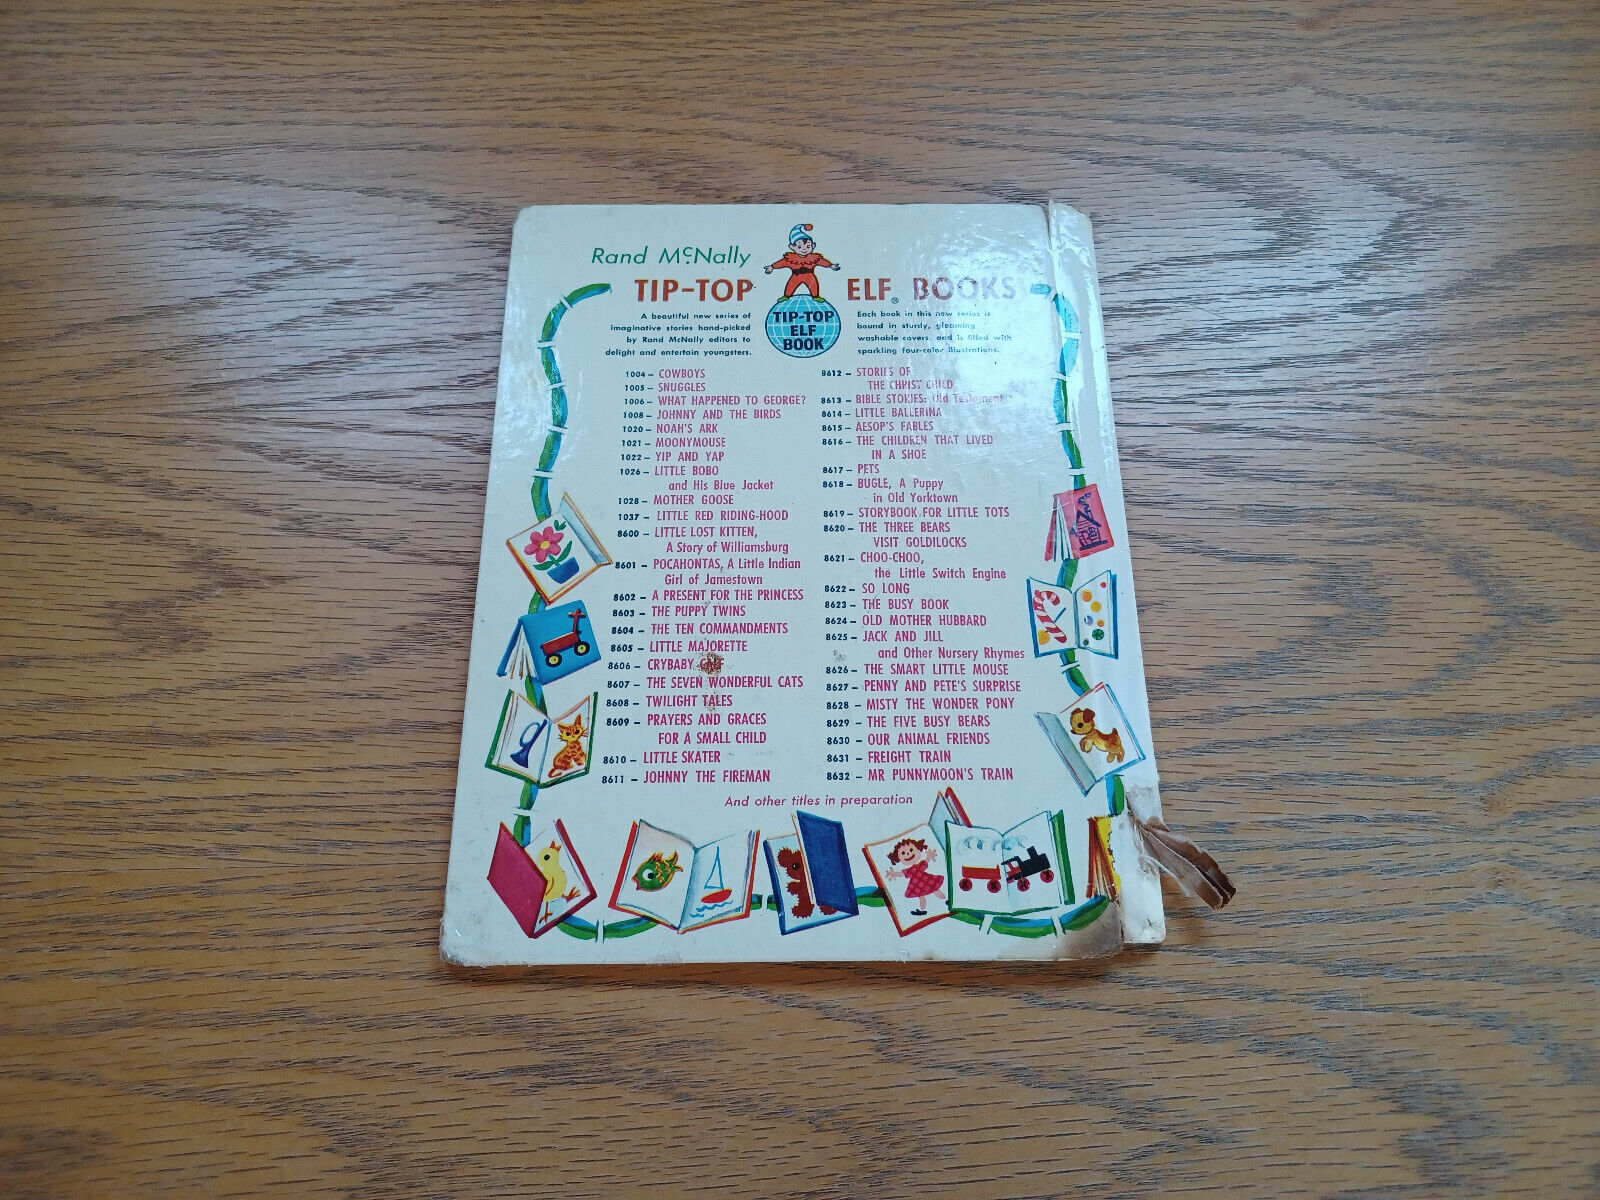 Rand McNally
TIP-TOP ELF® BOOKS
TIP-TOP
ELF
BOOK
A beautiful new series of
imaginative stories hand-picked
by Rand McNally editors to
delight and entertain youngsters.
Each book in this new series is
bound in sturdy, gleaming
washable covers, and is filled with
sparkling four-color illustrations.
1004 – COWBOYS
1005 – SNUGGLES
1006 – WHAT HAPPENED TO GEORGE?
1008 – JOHNNY AND THE BIRDS
1020 – NOAH'S ARK
1021 – MOONYMOUSE
1022 – YIP AND YAP
1026 – LITTLE BOBO
and His Blue Jacket
1028 – MOTHER GOOSE
1037 – LITTLE RED RIDING-HOOD
8600 – LITTLE LOST KITTEN,
A Story of Williamsburg
8601 – POCAHONTAS, A Little Indian
Girl of Jamestown
8602 – A PRESENT FOR THE PRINCESS
8603 – THE PUPPY TWINS
8604 – THE TEN COMMANDMENTS
8605 – LITTLE MAJORETTE
8606 – CRYBABY CALF
8607 – THE SEVEN WONDERFUL CATS
8608 – TWILIGHT TALES
8609 – PRAYERS AND GRACES
FOR A SMALL CHILD
8610 – LITTLE SKATER
8611 – JOHNNY THE FIREMAN
8612 – STORIES OF
THE CHRIST CHILD
8613 – BIBLE STORIES: Old Testament
8614 – LITTLE BALLERINA
8615 – AESOP'S FABLES
8616 – THE CHILDREN THAT LIVED
IN A SHOE
8617 – PETS
8618 – BUGLE, A Puppy
in Old Yorktown
8619 – STORYBOOK FOR LITTLE TOTS
8620 – THE THREE BEARS
VISIT GOLDILOCKS
8621 – CHOO-CHOO,
the Little Switch Engine
8622 – SO LONG
8623 – THE BUSY BOOK
8624 – OLD MOTHER HUBBARD
8625 – JACK AND JILL
and Other Nursery Rhymes
8626 – THE SMART LITTLE MOUSE
8627 – PENNY AND PETE'S SURPRISE
8628 – MISTY THE WONDER PONY
8629 – THE FIVE BUSY BEARS
8630 – OUR ANIMAL FRIENDS
8631 – FREIGHT TRAIN
8632 – MR PUNNYMOON'S TRAIN
And other titles in preparation